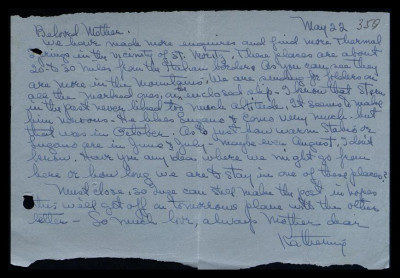 May 22 350
Beloved Mother.
We have made more enquires and find more Thermal
springs in the vicinity of St. Moritz. These places are about
20 to 30 miles from the Italian border. As you can see they
are more in the mountains. We are sending for folders on
all the marked ones on enclosed slip. I know that
in the past never liked too much altitude. It seems to make
him nervous. He likes Lugano & Como very much but
that was in October. As to just how warm or
Lugano are in June & July - maybe even August, I don't
know. Have you any idea where we might go from
here or how long we are to stay in one of these places?
Must close, so Suze can still make the post in hopes
this will get off on tomorrows plane with the other
letter - So much love, always Mother dear
Katherine